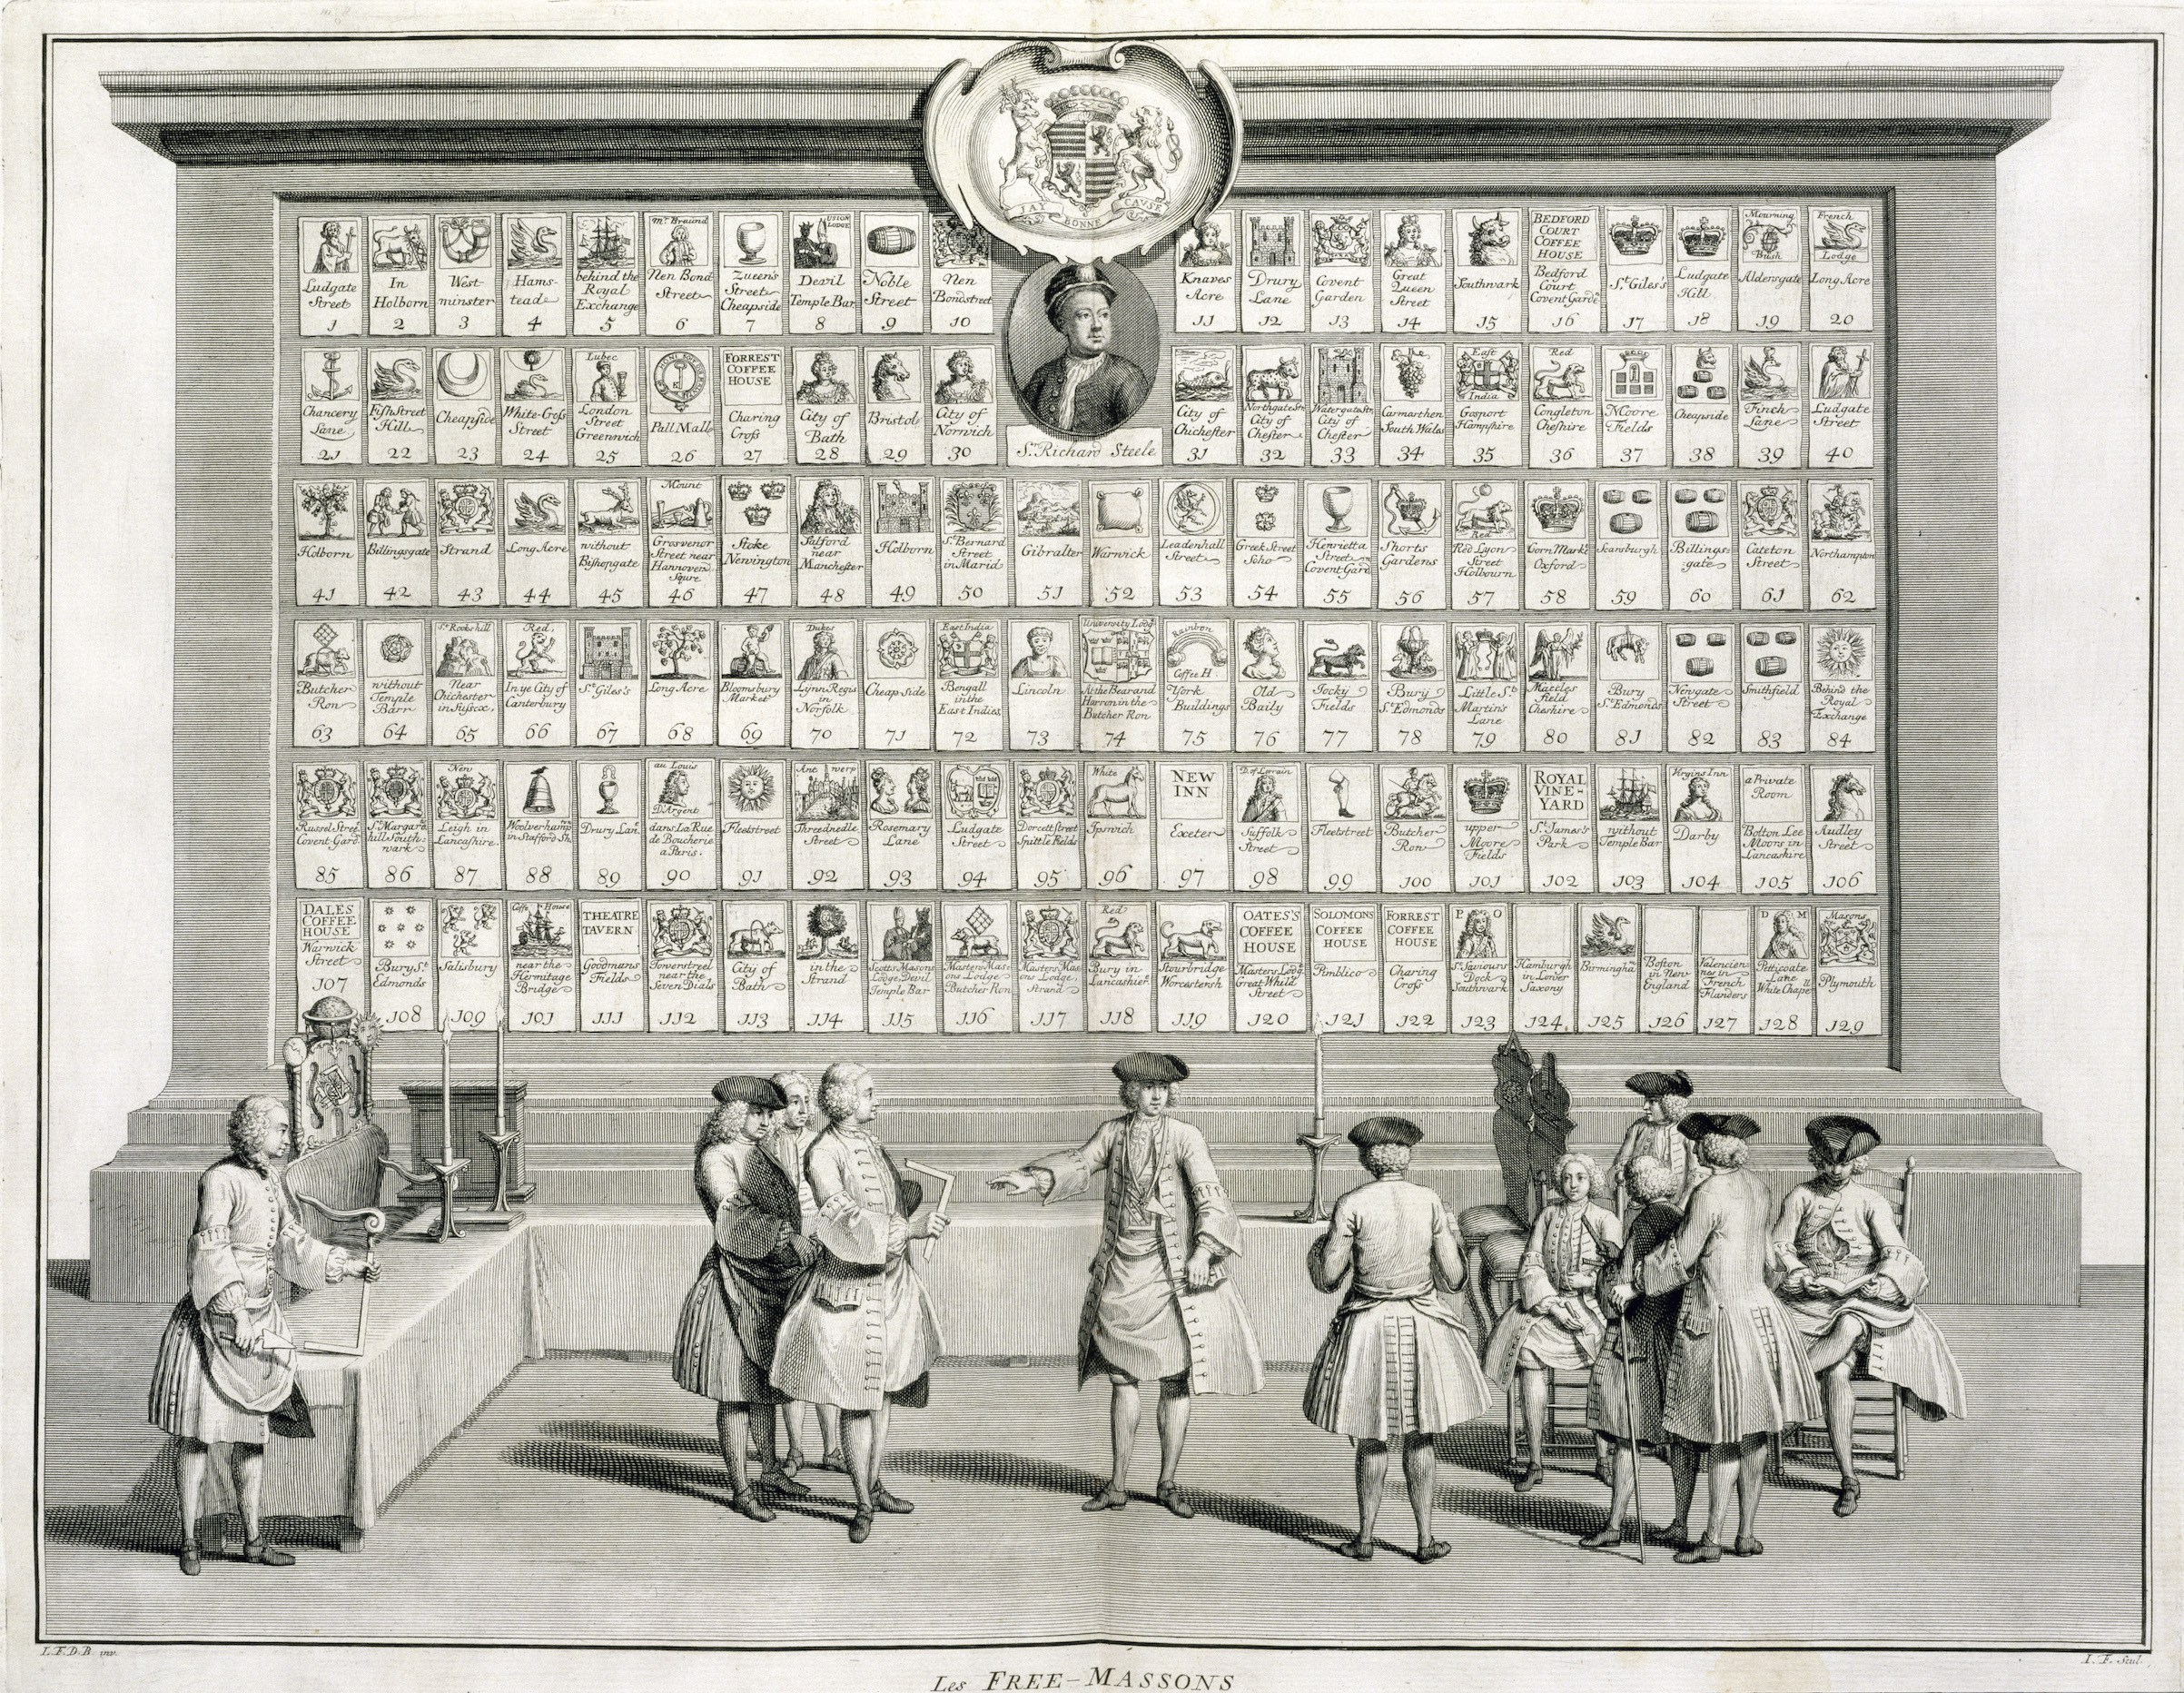 JAY BONNE CAVSE
Ludgate
Street
1
In
Holborn
2
West
minster
3
Hams-
tead
4
behind the
Royal
Exchange
5
Mr. Braund
Nen Bond
Street
6
Zueen's
Street
Cheapside
7
UNION
LODGE
Devil
Temple Bar
8
Noble
Street
9
Nen
Bondstreet
10
Knaves
Acre
11
Drury
Lane
12
Covent
Garden
13
Great
Queen
Street
14
Southwark
15
BEDFORD
COURT
COFFEE
HOUSE
Bedford
Court
Covent Garde
16
St. Giles's
17
Ludgate
Hill
18
Mourning
Bush
Aldersgate
19
French
Lodge
Long Acre
20
Chancery
Lane
21
Fish Street
Hill
22
Cheapside
23
White-Cross
Street
24
Lubec
London
Street
Greenwich
25
Pall Mall
26
FORREST
COFFEE
HOUSE
Charing
Cross
27
City of
Bath
28
Bristol
29
City of
Norwich
30
Sr. Richard Steele
City of
Chichester
31
Northgate Str
City of
Chester
32
Watergate Str
City of
Chester
33
Carmarthen
South Wales
34
East
India
Gosport
Hampshire
35
Red
Congleton
Cheshire
36
Moore
Fields
37
Cheapside
38
Finch
Lane
39
Ludgate
Street
40
Holborn
41
Billingsgate
42
Strand
43
Long Acre
44
without
Bishopgate
45
Mount
Grosvenor
Street near
Hannover
Squre
46
Stoke
Newington
47
Salford
near
Manchester
48
Holborn
49
St. Bernard
Street
in Marid
50
Gibralter
51
Warwick
52
Leadenhall
Street
53
Greek Street
Soho
54
Henrietta
Street
Covent Gard
55
Shorts
Gardens
56
Red
Red Lyon
Street
Holbourn
57
Corn Mark
Oxford
58
Scarsburgh
59
Billings-
gate
60
Cateton
Street
61
Northampton
62
Butcher
Ron
63
without
Temple
Barr
64
St. Rooks hill
Near
Chichester
in Sussex.
65
Red
In ye City of
Canterbury
66
St. Giles's
67
Long Acre
68
Bloomsbury
Market
69
Dukes
Lynn Regis
in
Norfolk
70
Cheapside
71
East India
Bengall
in the
East Indies
72
Lincoln
73
University Lodg
At the Bear and
Harron in the
Butcher Ron
74
Rainbon
Coffee H
York
Buildings
75
Old
Baily
76
Jocky
Fields
77
Bury
St. Edmonds
78
Little St.
Martin's
Lane
79
Maccles
field
Cheshire
80
Bury
St. Edmonds
81
Nevgate
Street
82
Smithfield
83
Behind the
Royal
Exchange
84
Russel Street
Covent Gard.
85
St. Margar.
hill South-
wark
86
Nen
Leigh in
Lancashire.
87
Woolverhampton
in Stafford Sh.
88
Drury Lan
89
au Louis
D'Argent
dans La Rue
de Boucherie
a Paris.
90
Fleetstreet
91
Ant werp
Threednedle
Street
92
Rosemary
Lane
93
Ludgate
Street
94
Dorcett Street
Spittle Fields
95
White
Ipsvich
96
NEW
INN
Exeter
97
D. of Lorrain
Suffolk
Street
98
Fleetstreet
99
Butcher
Ron
100
upper
Moore
Fields
101
ROYAL
VINE-
YARD
St. James's
Park
102
without
Temple Bar
103
Virgins Inn
Darby
104
a Private
Room
Bolton Lee
Moons in
Lancashire
105
Audley
Street
106
DALES
COFFEE
HOUSE
Warwick
Street
107
Bury St.
Edmonds
108
Salisbury
109
Coffe House
near the
Hermitage
Bridge
101
THEATRE
TAVERN
Goodmans
Fields
111
Towerstreet
near the
Seven Dials
112
City of
Bath
113
in the
Strand
114
Scotts Masons
Lodge, Devil
Temple Bar
115
Masters Mas-
ons Lodge
Butcher Ron
116
Masters Mas
ons Lodge
Strand
117
Red
Bury in
Lancashier
118
Stourbridge
Worcestersh
119
OATES'S
COFFEE
HOUSE
Masters Lodg
Great Whild
Street
120
SOLOMONS
COFFEE
HOUSE
Pimblico
121
FORREST
COFFEE
HOUSE
Charing
Cross
122
P O
St. Saviours
Dock
Southwark
123
Hamburgh
in Lower
Saxony
124
Birmingham
125
Boston
in Nen
England
126
Valencien
nes in
French
Flanders
127
D M
Petticoate
Lane
White Chapel
128
Masons
Plymouth
129
L.F.D.B. inv.
I. F. Scul.
Les FREE-MASSONS